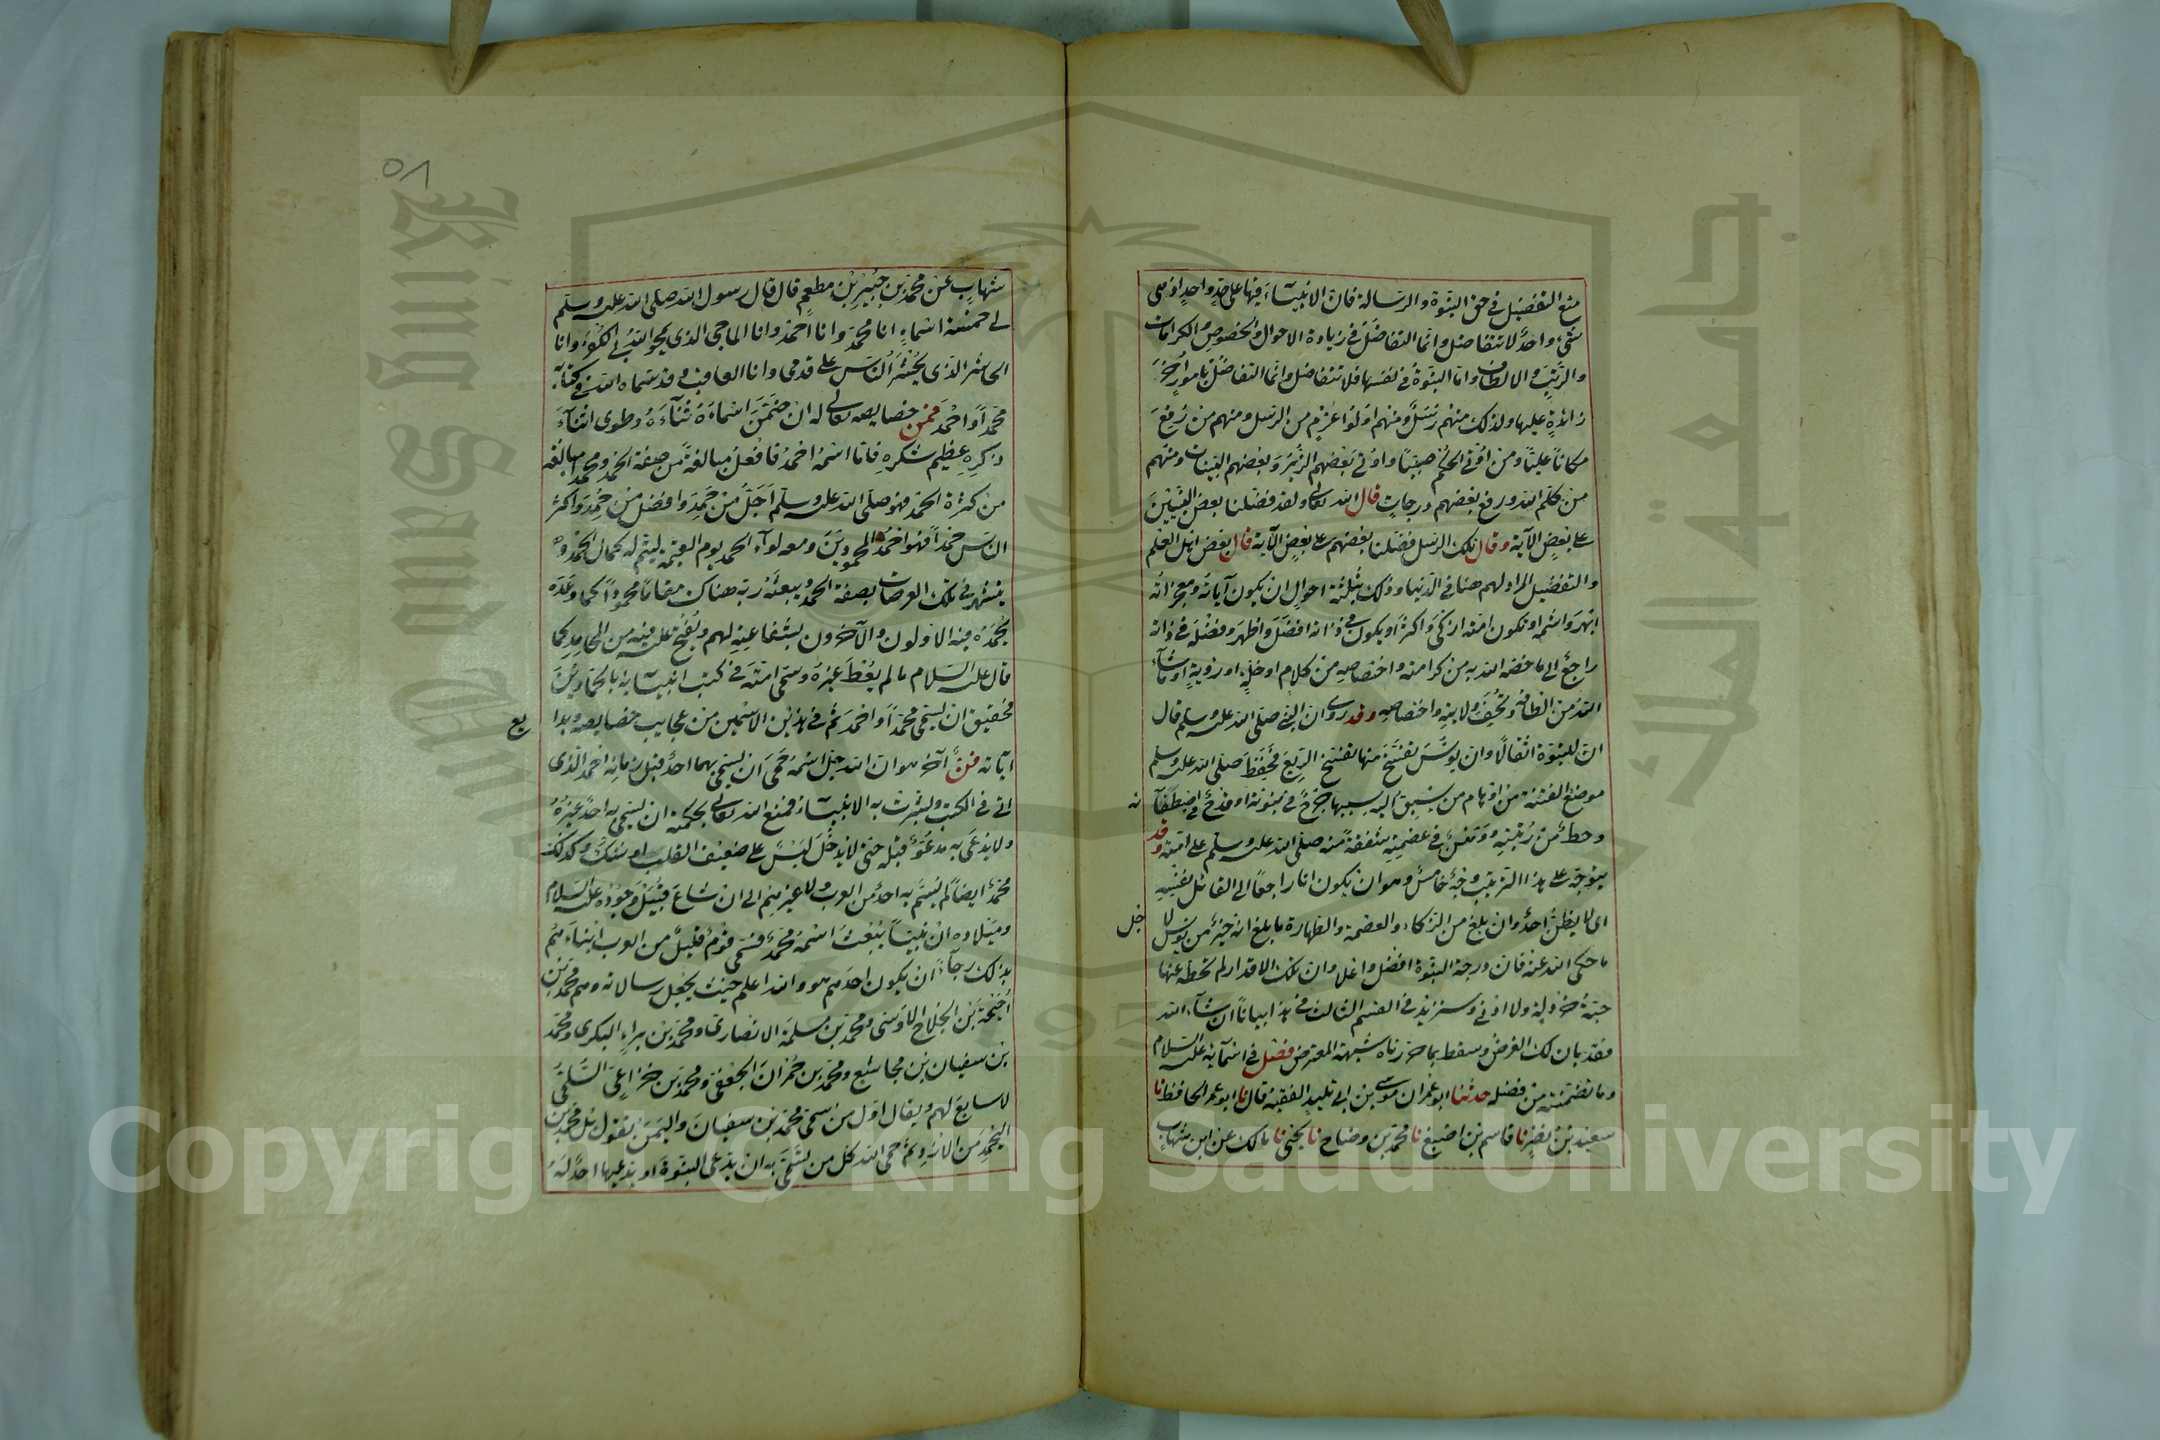 منع التفضيل في حق النبوة والرسالة فان الانبياء فيها على حد واحد اذ هي
شيء واحد لا تتفاضل وانما التفاضل في زيادة الاحوال والخصوص والكرامات
والرتب والالطاف واما النبوة في نفسها فلا تتفاضل وانما التفاضل بامور اخر
زائدة عليها ولذلك منهم رسل ومنهم اولوا عزم من الرسل ومنهم من رفع
مكانا عليا ومن اوتي الحكم صبيا واوتي بعضهم الزبر وبعضهم البينات ومنهم
من كلم الله ورفع بعضهم درجات قال الله تعالى ولقد فضلنا بعض النبيين
على بعض الآية وقال تلك الرسل فضلنا بعضهم على بعض الآية قال بعض اهل العلم
والتفضيل المراد لهم هنا في الدنيا وذلك بثلثة احوال ان يكون آياته ومعجزاته
ابهر واشهر او تكون امته ازكى واكثر او يكون في ذاته افضل واظهر وفضله في ذاته
راجع الى ما خصه الله به من كرامته واختصاصه من كلام او خلة او رؤية او ما شاء
الله من الطافه وتحف ولايته واختصاصه وقد روى ان النبي صلى الله عليه وسلم قال
ان للنبوة اثقالا وان يونس تفسخ منها تفسخ الربع فحفظ صلى الله عليه وسلم
موضع الفتنة من اوهام من يسبق اليه بسببها جرح في نبوته او قدح في اصطفا
ئه
وحط من رتبته ووهن في عصمته شفقة منه صلى الله عليه وسلم على امته وقد
يتوجه على هذا الترتيب وجه خامس وهو ان يكون انا راجعا الى القائل نفسه
اى لا يظن احد وان بلغ من الزكاء والعصمة والطهارة ما بلغ انه خير من يونس لا
جل
ما حكى الله عنه فان درجة النبوة افضل واعلا وان تلك الاقدار لم تحطه عنها
حبة خردلة ولا ادنى وسنزيد في القسم الثالث في هذا بيانا ان شاء الله
فقد بان لك الغرض وسقط بما حررناه شبهة المعترض فصل في اسمائه عليه السلام
وما تضمنته من فضله حدثنا ابو عمران موسى بن ابي تليد الفقيه قال نا ابو عمر الحافظ نا
سعيد بن نصر نا قاسم بن اصبغ نا محمد بن وضاح نا يحيى نا مالك عن ابن شهاب
٥٨
شهاب عن محمد بن جبير بن مطعم قال قال رسول الله صلى الله عليه وسلم
لي خمسة اسماء انا محمد وانا احمد وانا الماحي الذي يمحو الله بي الكفر وانا
الحاشر الذي يحشر الناس على قدمي وانا العاقب وقد سماه الله في كتابه
محمدا واحمد فمن خصايصه تعالى له ان ضمن اسماءه ثناءه وطوى اثناء
ذكره عظيم شكره فاما اسمه احمد فافعل مبالغة من صفة الحمد ومحمد مبالغة
من كثرة الحمد فهو صلى الله عليه وسلم اجل من حمد وافضل من حمد واكثر
الناس حمدا فهو احمد المحمودين ومعه لواء الحمد يوم القيمة ليتم له كمال الحمد و
يشتهر في تلك العرصات بصفة الحمد ويبعثه ربه هناك مقاما محمودا كما وعده
يحمده فيه الاولون والآخرون بشفاعته لهم ويفتح عليه فيه من المحامد كما
قال عليه السلام ما لم يعط غيره وسمى امته في كتب انبيائه بالحمادين
فحقيق ان يسمى محمدا واحمد ثم في هذين الاسمين من عجايب خصايصه وبدا
يع
آياته فن آخر هو ان الله جل اسمه حمى ان يسمى بهما احد قبل زمانه احمد الذي
اتى في الكتب وبشرت به الانبياء فمنع الله تعالى بحكمته ان يسمى به احد غيره
ولا يدعى به مدعو قبله حتى لا يدخل لبس على ضعيف القلب او شك وكذلك
محمد ايضا لم يسم به احد من العرب ولا غيرهم الى ان شاع قبيل وجوده عليه السلام
وميلاده ان نبيا يبعث اسمه محمد فسمى قوم قليل من العرب ابناءهم
بذلك رجاء ان يكون احدهم هو والله اعلم حيث يجعل رسالاته وهم محمد بن
احيحة بن الجلاح الاوسى ومحمد بن مسلمة الانصاري ومحمد بن براء البكري ومحمد
بن سفيان بن مجاشع ومحمد بن حمران الجعفي ومحمد بن خزاعي السلمي
لا سابع لهم ويقال اول من سمى محمد بن سفيان واليمن يقول بل محمد بن
اليحمد من الازد ثم حمى الله كل من تسمى به ان يدعى النبوة او يدعيها احد له
Copyright © King Saud University
King Saud University
جامعة الملك سعود
1957